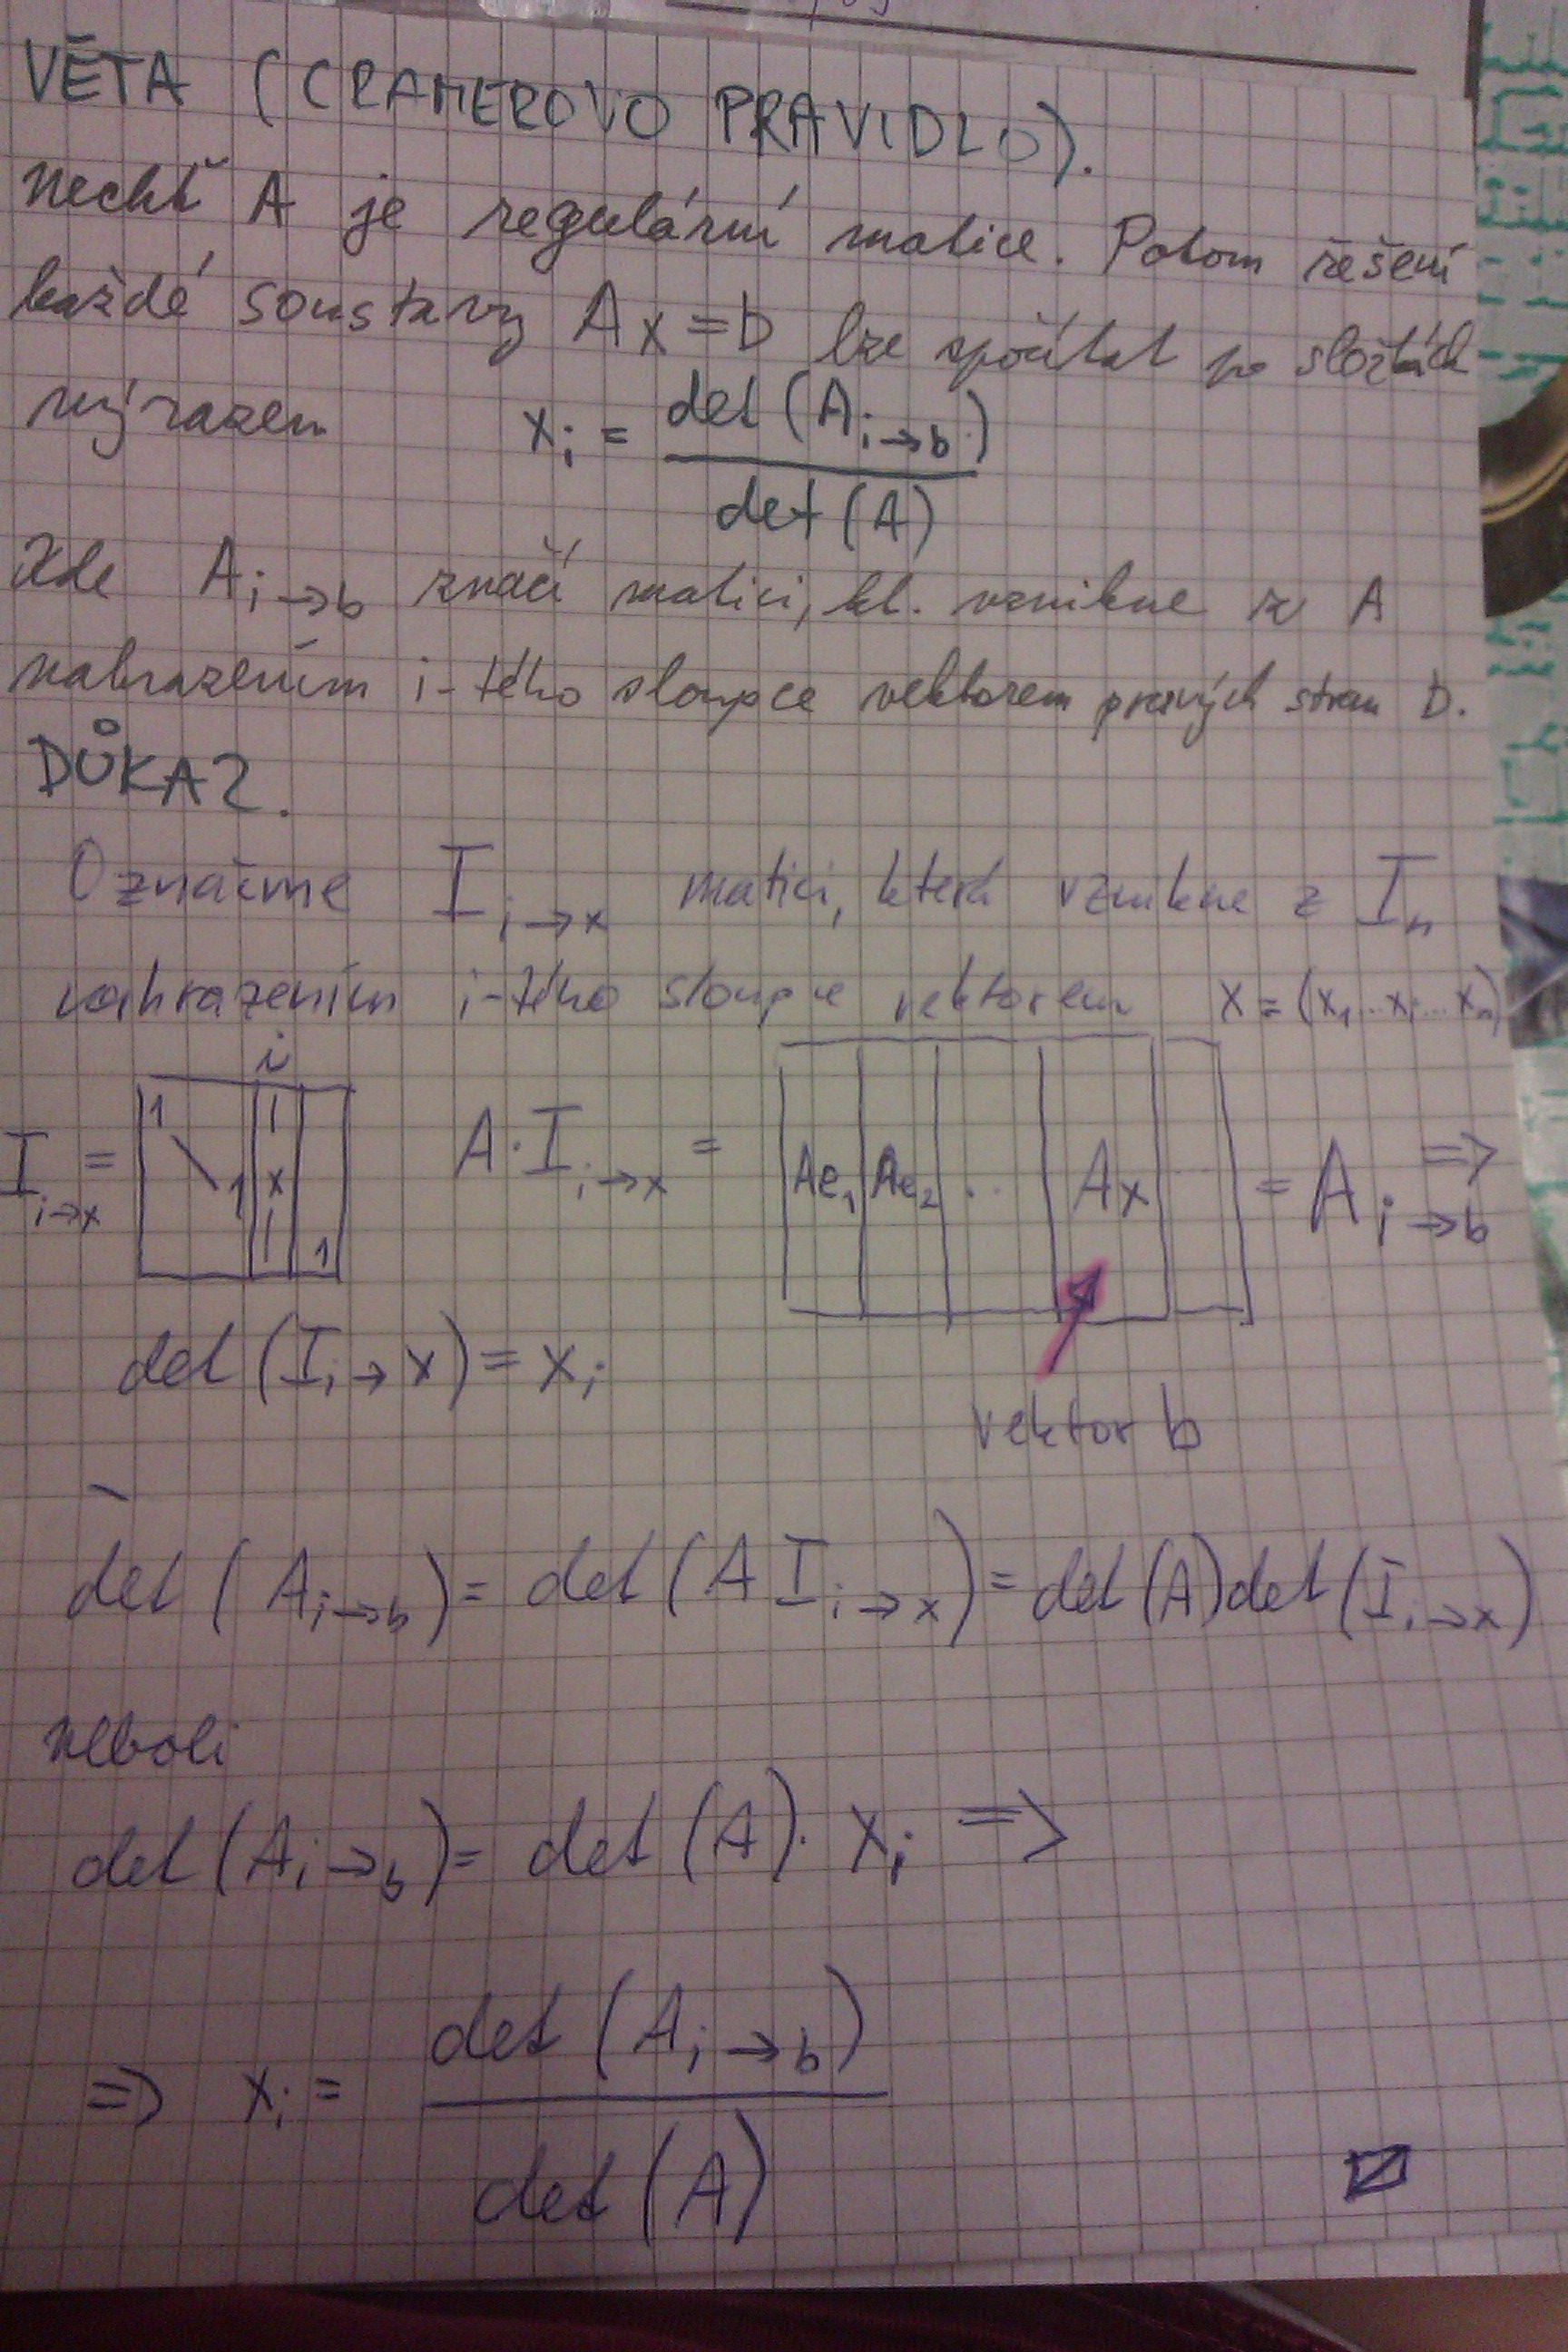 VĚTA (CRAMEROVO PRAVIDLO).
Nechť A je regulární matice. Potom řešení
každé soustavy Ax=b lze spočítat po složkách
výrazem x_i = det(A_{i→b}) / det(A)
Kde A_{i→b} značí matici, kt. vznikne z A
nahrazením i-tého sloupce vektorem pravých stran b.
DŮKAZ.
Označme I_{i→x} matici, která vznikne z I_n
nahrazením i-tého sloupce vektorem x = (x_1...x_i...x_n)
i
I_{i→x} = 1 \ 1 | x | 1 A·I_{i→x} = Ae_1 | Ae_2 | .. | Ax | .. = A_{i→b} ⇒
det(I_{i→x}) = x_i
vektor b
det(A_{i→b}) = det(A I_{i→x}) = det(A)det(I_{i→x})
neboli
det(A_{i→b}) = det(A)· x_i ⇒
⇒ x_i = det(A_{i→b}) / det(A)